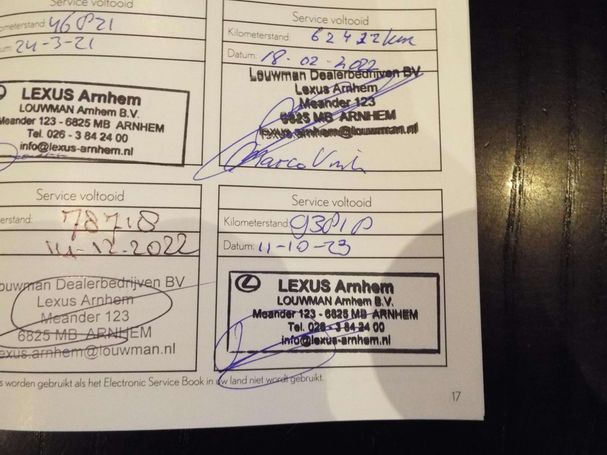 Service voltooid
meterstand: 46821
um: 24-3-21
LEXUS Arnhem
LOUWMAN Arnhem B.V.
Meander 123 - 6825 MB ARNHEM
Tel. 026 - 3 64 24 00
info@lexus-arnhem.nl
Service voltooid
Kilometerstand: 62422km
Datum: 18-02-2022
Louwman Dealerbedrijven BV
Lexus Arnhem
Meander 123
6825 MB ARNHEM
lexus.arnhem@louwman.nl
Marco
Service voltooid
erstand: 78718
14-12-2022
ouwman Dealerbedrijven BV
Lexus Arnhem
Meander 123
6825 MB ARNHEM
exus.arnhem@louwman.nl
Service voltooid
Kilometerstand: 93818
Datum: 11-10-23
LEXUS Arnhem
LOUWMAN Arnhem B.V.
Meander 123 - 6825 MB ARNHEM
Tel. 026 - 3 64 24 00
info@lexus-arnhem.nl
s worden gebruikt als het Electronic Service Book in uw land niet wordt gebruikt.
17